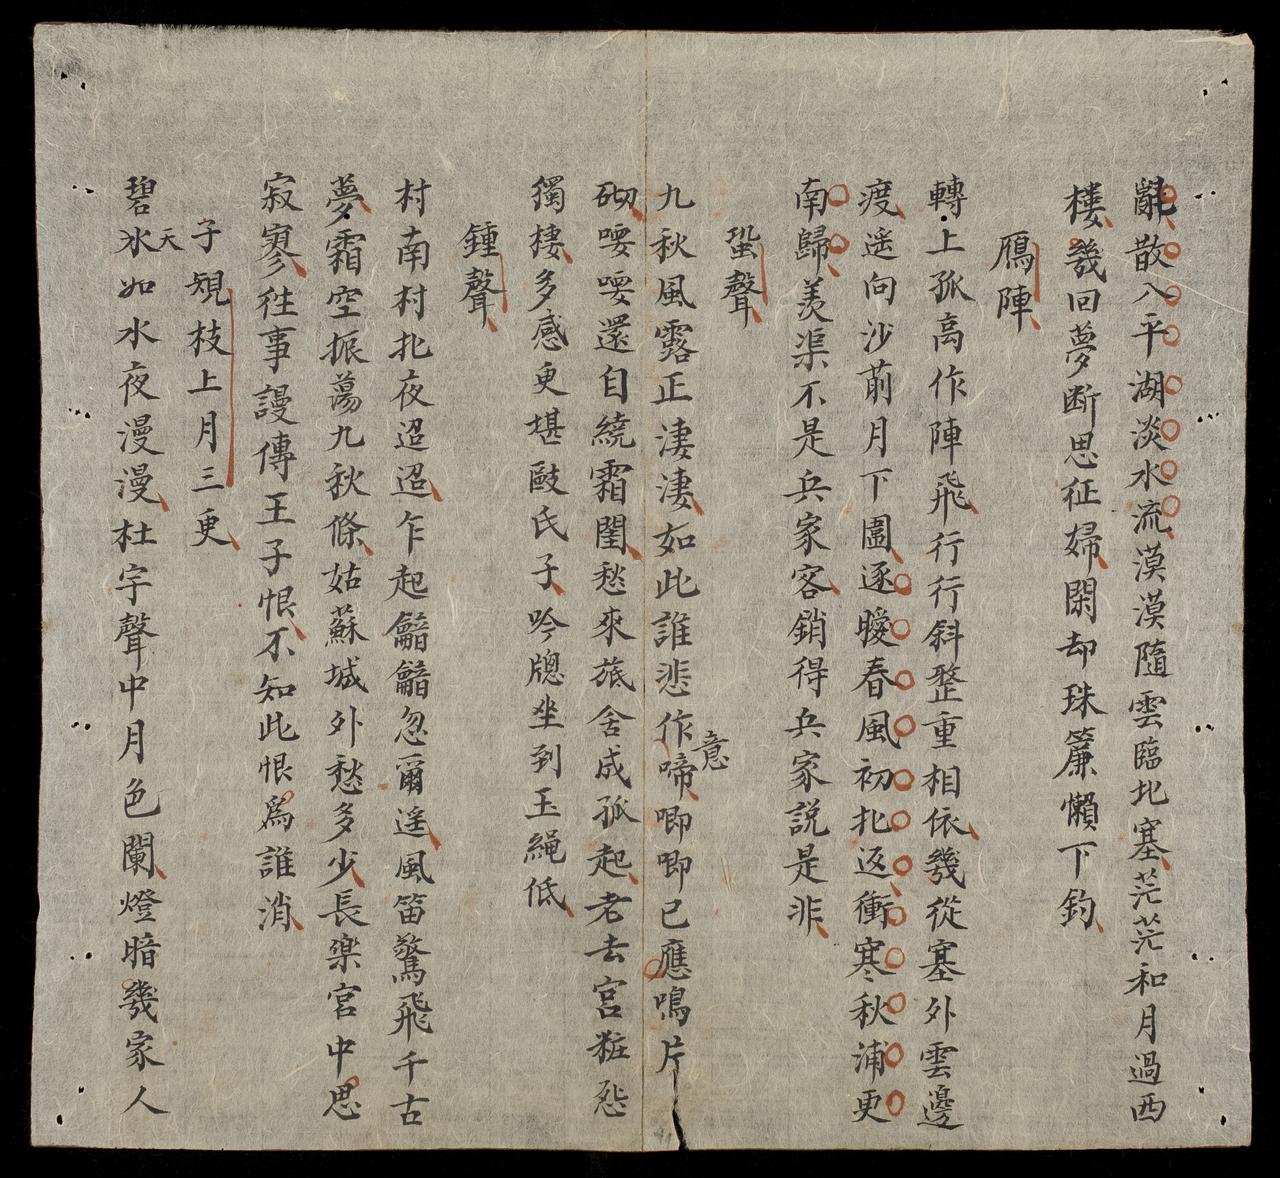 亂散八平湖淡水流漠漠隨雲臨北塞茫茫和月過西
樓幾回夢断思征婦閑却珠簾懶下鈎
鴈陣
轉上孤高作陣飛行行斜整重相依幾從塞外雲邊
渡遥向沙前月下圍逐曖春風初北返衝寒秋浦更
南歸羡渠不是兵家客銷得兵家説是非
蛩聲
九秋風露正淒淒如此誰悲作啼唧唧已應鳴片
意
砌喓喓還自繞霜閨愁來旅舍成孤起老去宮粧怨
獨棲多感更堪歐氏子吟牕坐到玉繩低
鍾聲
村南村北夜迢迢乍起龤龤忽爾遥風笛驚飛千古
夢霜空振蕩九秋條姑蘇城外愁多少長樂宮中思
寂寥徃事謾傳王子恨不知此恨爲誰消
子規枝上月三更
碧氷如水夜漫漫杜宇聲中月色闌燈暗幾家人
天